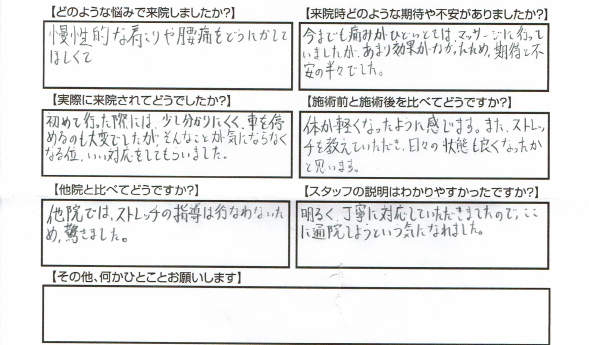 【どのような悩みで来院しましたか?】
慢性的な肩こりや腰痛をどうにかして
ほしくて
【来院時どのような期待や不安がありましたか?】
今までも痛みがひどいときは、マッサージに行って
いましたが、あまり効果がなかったため、期待と不
安の半々でした。
【実際に来院されてどうでしたか?】
初めて行った際には、少し分かりにくく、車を停
めるのも大変でしたが、そんなことが気にならなく
なる位、いい対応をしてもらいました。
【施術前と施術後を比べてどうですか?】
体が軽くなったように感じます。また、ストレッ
チを教えていただき、日々の状態も良くなったか
と思います。
【他院と比べてどうですか?】
他院では、ストレッチの指導は行なわないた
め、驚きました。
【スタッフの説明はわかりやすかったですか?】
明るく、丁寧に対応していただきましたので、ここ
に通院しようという気になれました。
【その他、何かひとことお願いします】